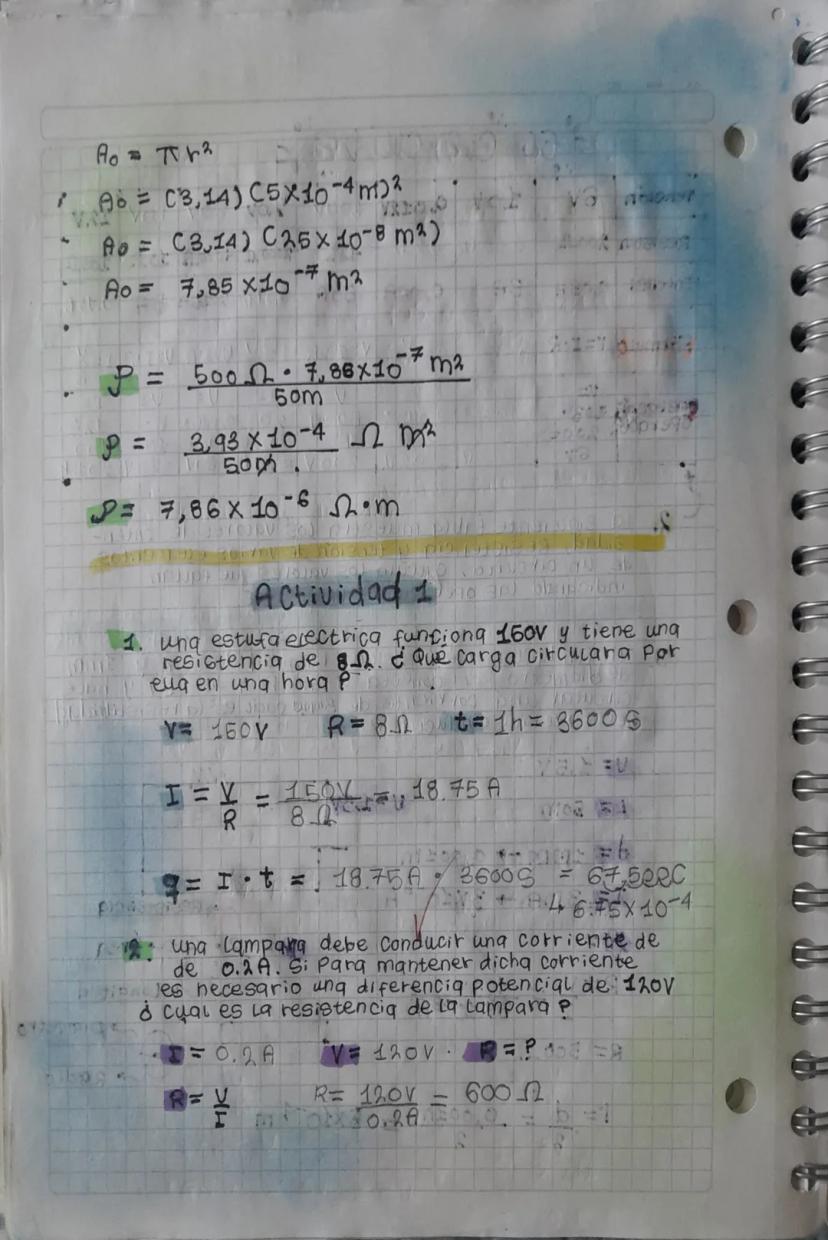 Ao = πr²
Ao = (3,14) (5×10⁻⁴m)²
Ao = (3,14) (25×10⁻⁸ m²)
Ao = 7,85 ×10⁻⁷ m²
ρ = 500 Ω · 7,86×10⁻⁷ m² / 50m
ρ = 3,93 × 10⁻⁴ / 50m Ω m²
ρ = 7,86 × 10⁻⁶ Ω·m
Actividad 1
1. una estufa electrica funciona 150V y tiene una
resistencia de 8Ω. ¿ Que carga circulara por
ella en una hora ?
V= 150V R= 8Ω t= 1h = 3600 S
I = V/R = 150V / 8Ω = 18.75 A
q = I · t = 18.75A · 3600S = 67,500C
6.75×10⁻⁴
2. una lampara debe conducir una corriente de
de 0.2A. Si para mantener dicha corriente
es necesario una diferencia potencial de 120V
¿ cual es la resistencia de la lampara ?
I = 0.2A V= 120V · R=?
R= V/I R= 120V / 0.2A = 600 Ω